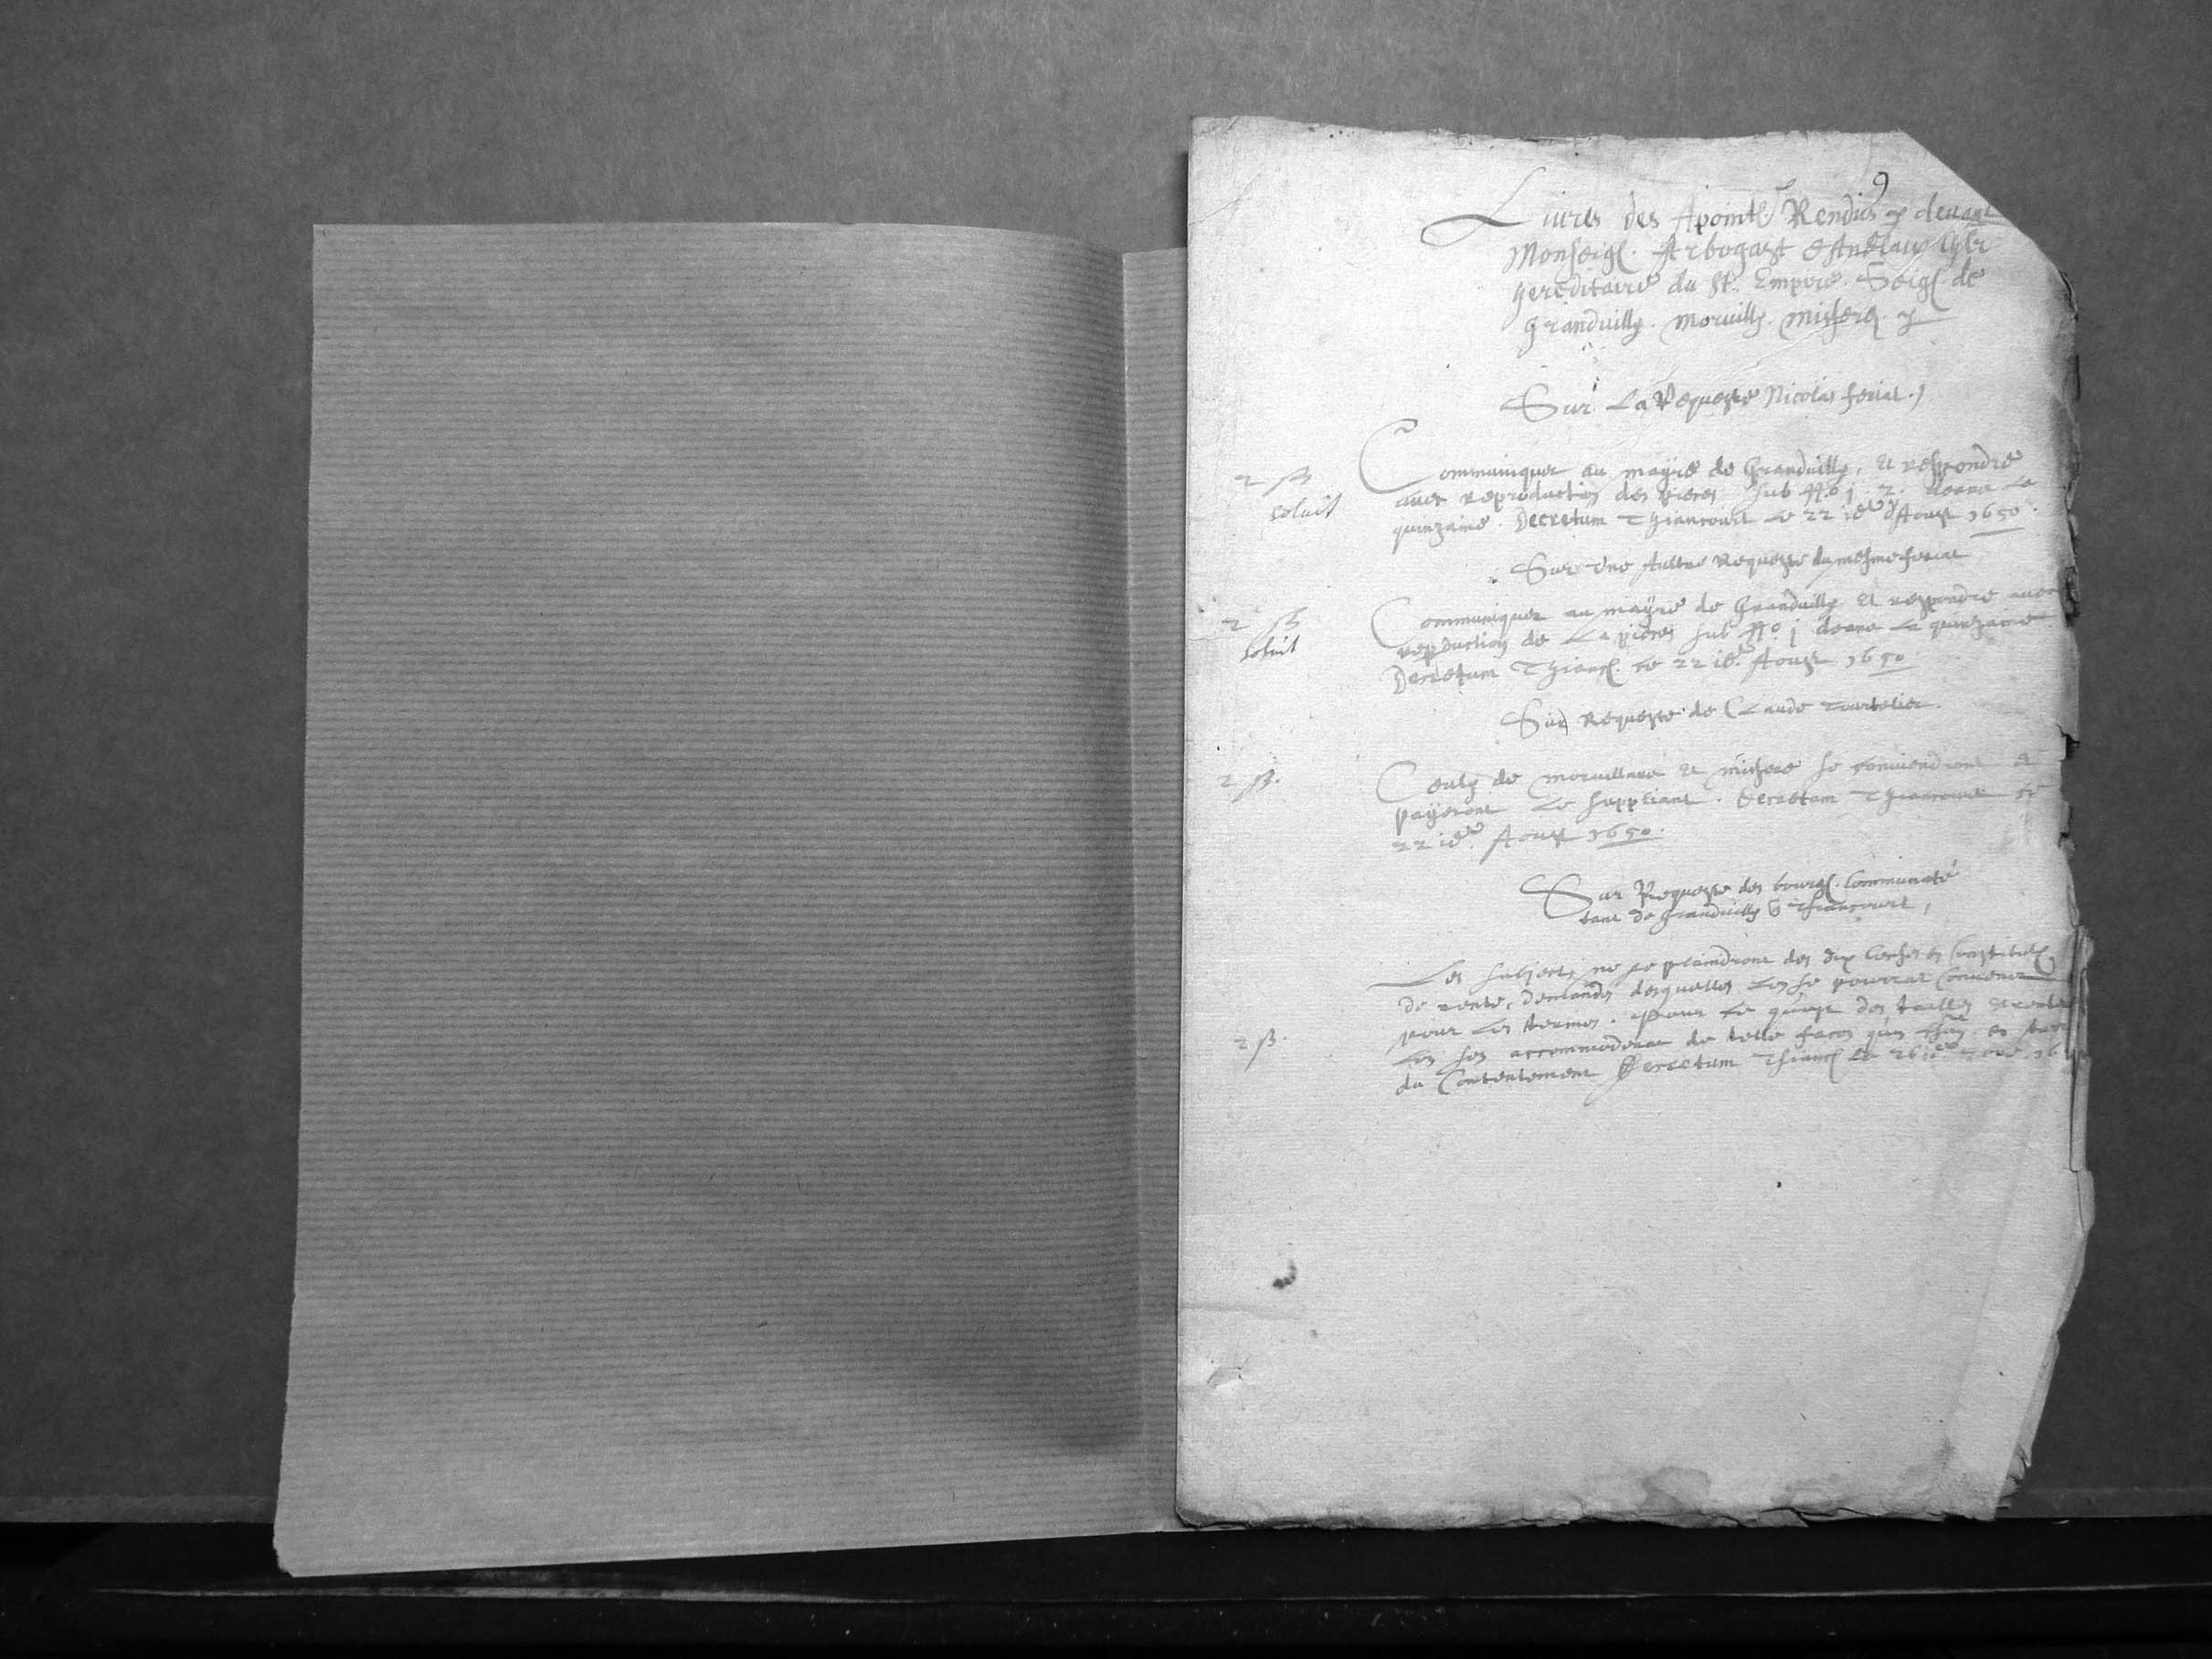 9
Liures des Apointe Rendus p devant
Monseig. Arbogast d'Andlauw Chlr
hereditaire du St. Empire. Seig de
Granduilly. Moruilly.
Sur La Requeste Nicolas feriat.
2 ß
soluit
Communiquer au mayre de Granduilly, et respondre
auec reproduction des pieces sub N.o j 2. deans La
quinzaine. Decretum Thiancourt Le 22 ie d'Aoust 1650.
Sur Vne Aultre Requeste du mesme feriat
2 ß
soluit
Communiquer au mayre de Granduilly et respondre auec
reproduction de La pieces sub No. j deans La quinzaine
Decretum Thianc. Le 22 ie. Aoust 1650
Sur Requeste de Claude Tourtelier.
2 ß.
Ceulx de moruillars et se conviendront et
payeront Le suppliant. Decretum Thiancourt Le
22 ie. Aoust 1650.
Sur Requeste des bourg. Communaté
tant de Granduilly Thiancourt,
Les subjects ne se plaindront des dix
de rente, demandes desquelles se pourront Convenir
2 ß.
pour Les termes. Pour Le des tailles
accommoderat de telle facon
du Contentement Decretum Thianc Le 26